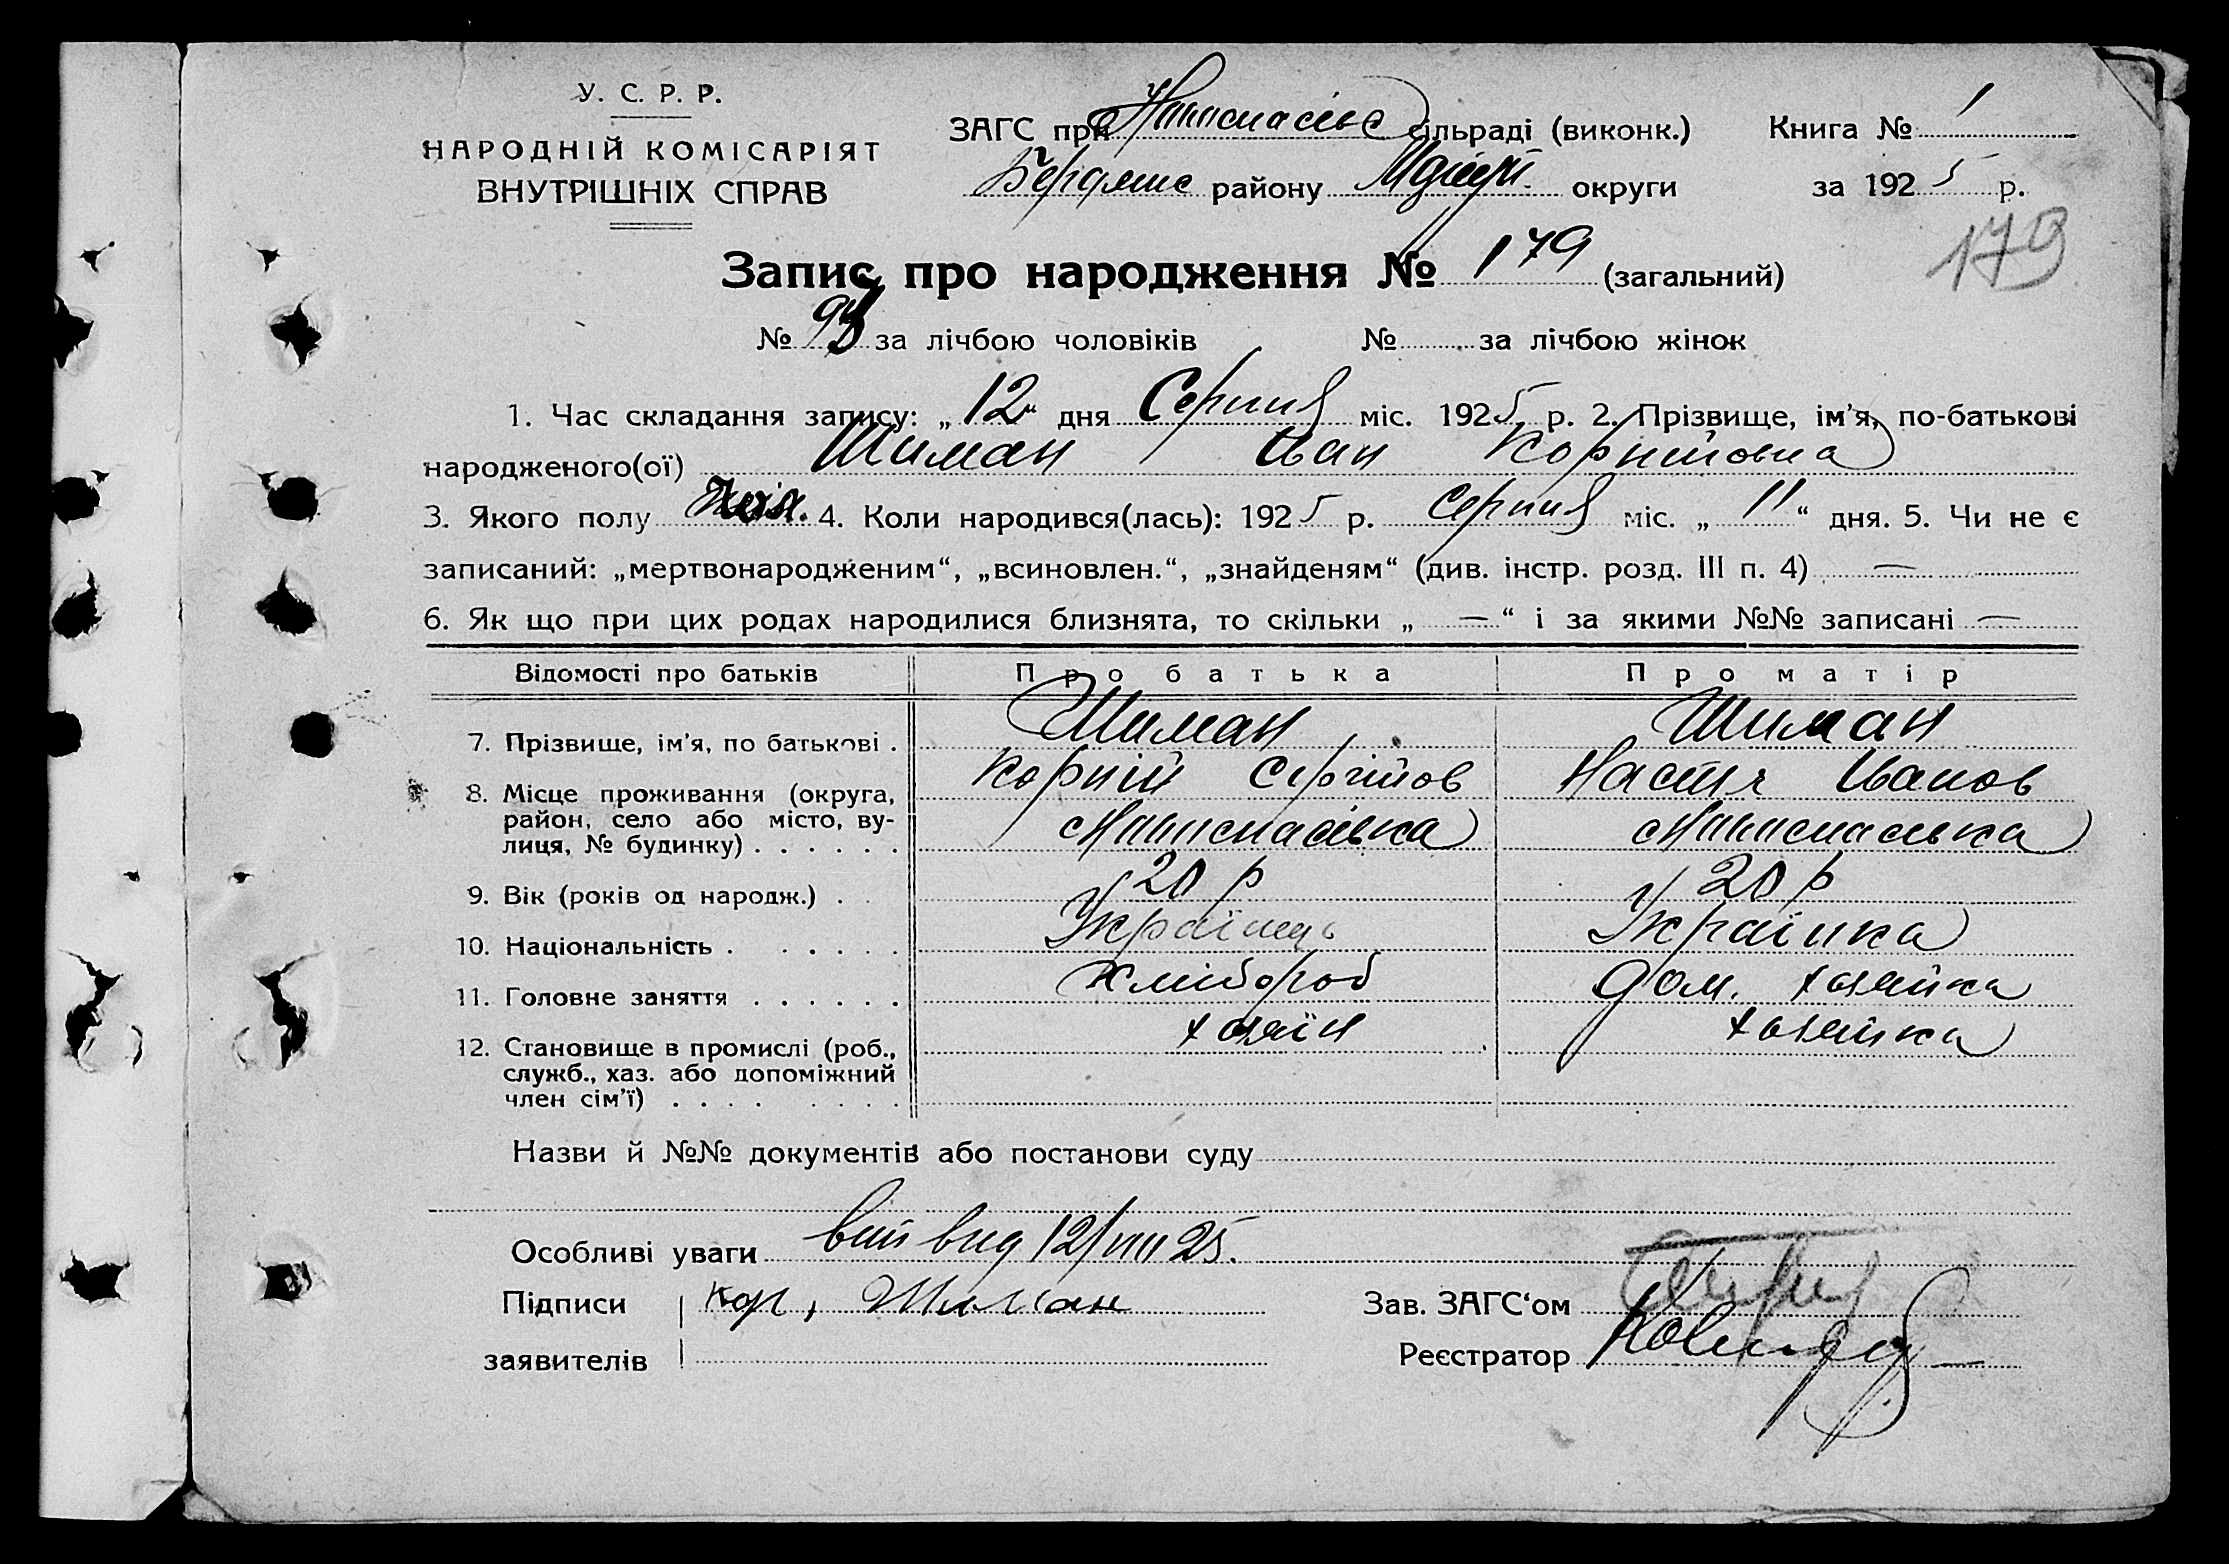 У. С. Р. Р.
НАРОДНІЙ КОМІСАРІЯТ
ВНУТРІШНІХ СПРАВ
ЗАГС при сільраді (виконк.) Книга № 1
Бердянс району округи за 1925 р.
Запис про народження № 179 (загальний)
179
№ за лічбою чоловіків № за лічбою жінок
1. Час складання запису: „12“ дня Серпня міс. 1925 р. 2. Прізвище, ім'я, по-батькові
народженого(ої) Шиман Іван Корнійовна
3. Якого полу 4. Коли народився(лась): 1925 р. Серпня міс. „11“ дня. 5. Чи не є
записаний: „мертвонародженим“, „всиновлен.“, „знайденям“ (див. інстр. розд. III п. 4) —
6. Як що при цих родах народилися близнята, то скільки „—“ і за якими №№ записані —
Відомості про батьків Про батька Про матір
7. Прізвище, ім'я, по батькові . Шиман Шиман
Корній Сергійов Настя Іванов
8. Місце проживання (округа, район, село або місто, вулиця, № будинку) . . . . . .
9. Вік (років од народж.) . . 20 р 20 р
10. Національність . . . . . Українець Українка
11. Головне заняття . . . . . . Хлібороб дом. хозяйка
12. Становище в промислі (роб., служб., хаз. або допоміжний член сім'ї) . . . . . . . . хозяїн хозяйка
Назви й №№ документів або постанови суду
Особливі уваги 12/VIII 25.
Підписи Кор, Шиман Зав. ЗАГС'ом
заявителів Реєстратор